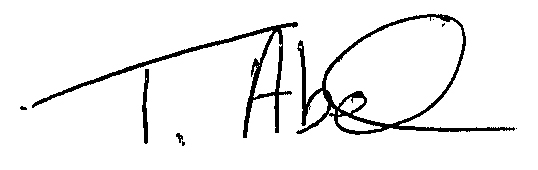 T. Abel